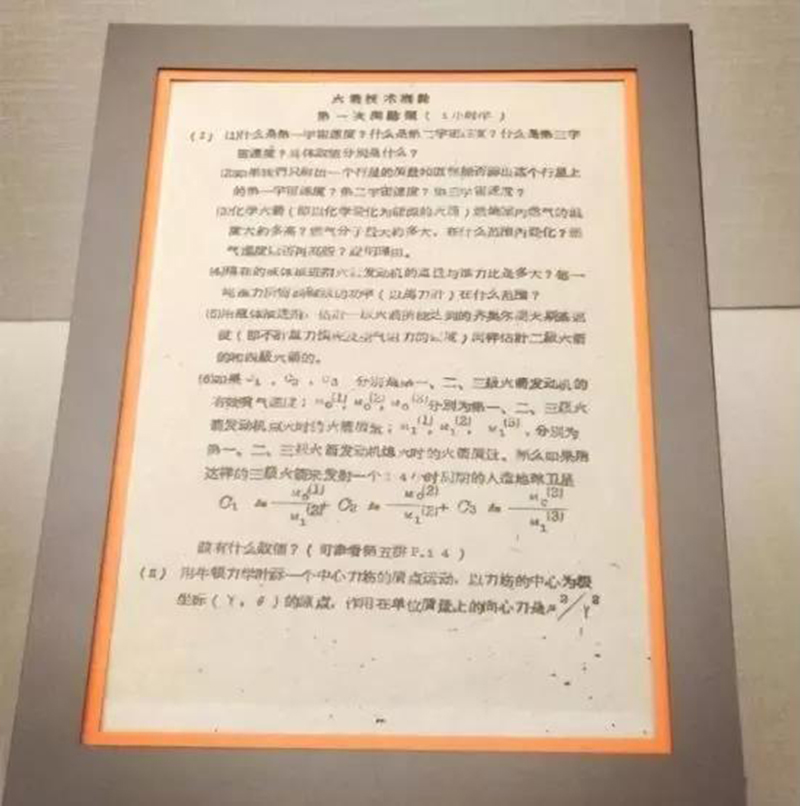 火箭技术概论
第一次测验题(1小时半)
(I) (1)什么是第一宇宙速度?什么是第二宇宙速度?什么是第三宇
宙速度?具体数值分别是什么?
(2)如果我們只知道一个行星的质量和直徑能否算出这个行星上
的第一宇宙速度?第二宇宙速度?第三宇宙速度?
(3)化学火箭(即以化学变化为能源的火箭)燃烧室内燃气的温
度大約多高?燃气分子量大約多大,在什么范围内变化?燃
气温度是否再高些?說明理由。
(4)現在的液体推进剂火箭发动机的重量与推力比是多大?每一
吨推力所需的功率(以馬力計)在什么范围?
(5)用液体推进剂,估計一級火箭所能达到的齐奥尔闊夫斯基速
度(即不計重力损失及空气阻力的速度)同样估計二級火箭
的和四級火箭的。
(6)如果C1,C2,C3 分别是第一、二、三級火箭发动机的
有效噴气速度;M0(1),M0(2),M0(3)分别为第一、二、三級火
箭发动机点火时的火箭质量;M1(1),M1(2),M1(3),分别为
第一、二、三級火箭发动机熄火时的火箭质量。那么如果用
这样的三級火箭来发射一个24小时周期的人造地球卫星
C1 ln M0(1)/M1(2) + C2 ln M0(2)/M1(2) + C3 ln M0(3)/M1(3)
該有什么数值?(可参看第五讲P.14)
(II) 用牛頓力学計算一个中心力场的质点运动,以力场的中心为极
坐标(γ,θ)的原点,作用在单位质量上的向心力是 2/γ2